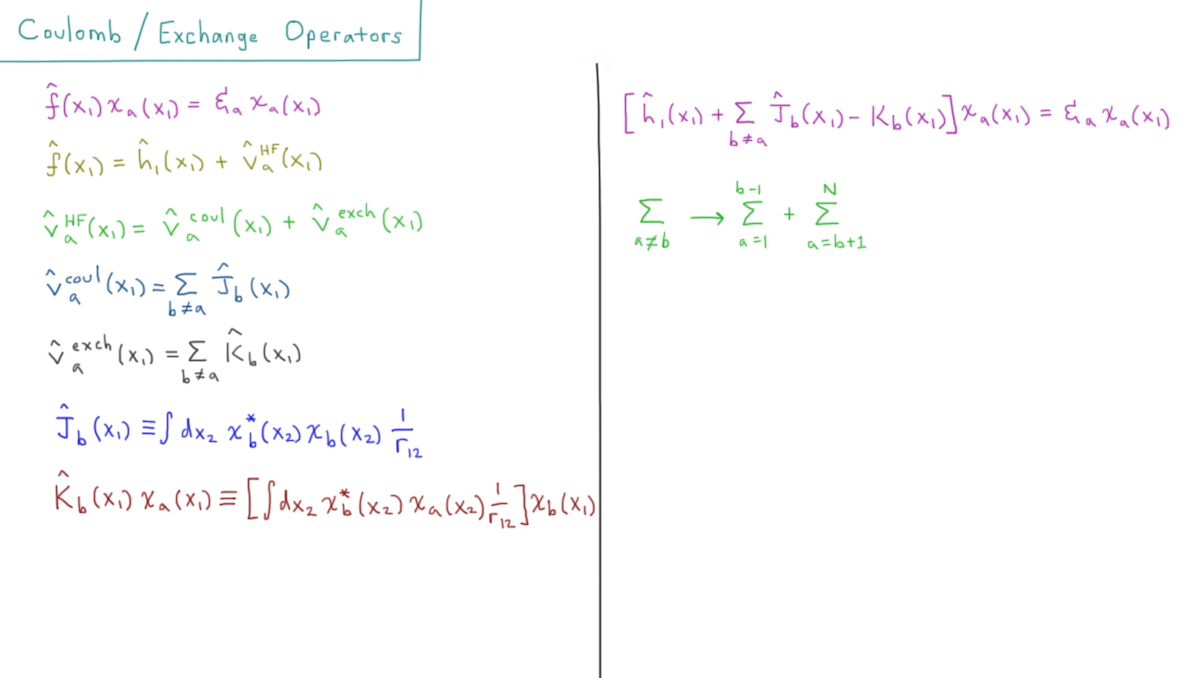 Coulomb / Exchange Operators
f̂(x₁) χₐ(x₁) = Ɛₐ χₐ(x₁)
f̂(x₁) = ĥ₁(x₁) + v̂ₐᴴᶠ(x₁)
v̂ₐᴴᶠ(x₁) = v̂ₐᶜᵒᵘˡ(x₁) + v̂ₐᵉˣᶜʰ(x₁)
v̂ₐᶜᵒᵘˡ(x₁) = Σ_{b≠a} Ĵ_b(x₁)
v̂ₐᵉˣᶜʰ(x₁) = Σ_{b≠a} K̂_b(x₁)
Ĵ_b(x₁) ≡ ∫ dx₂ χ_b^*(x₂) χ_b(x₂) 1/r₁₂
K̂_b(x₁) χₐ(x₁) ≡ [∫ dx₂ χ_b^*(x₂) χₐ(x₂) 1/r₁₂] χ_b(x₁)
[ĥ₁(x₁) + Σ_{b≠a} Ĵ_b(x₁) - K_b(x₁)] χₐ(x₁) = Ɛₐ χₐ(x₁)
Σ_{a≠b} → Σ_{a=1}^{b-1} + Σ_{a=b+1}^{N}